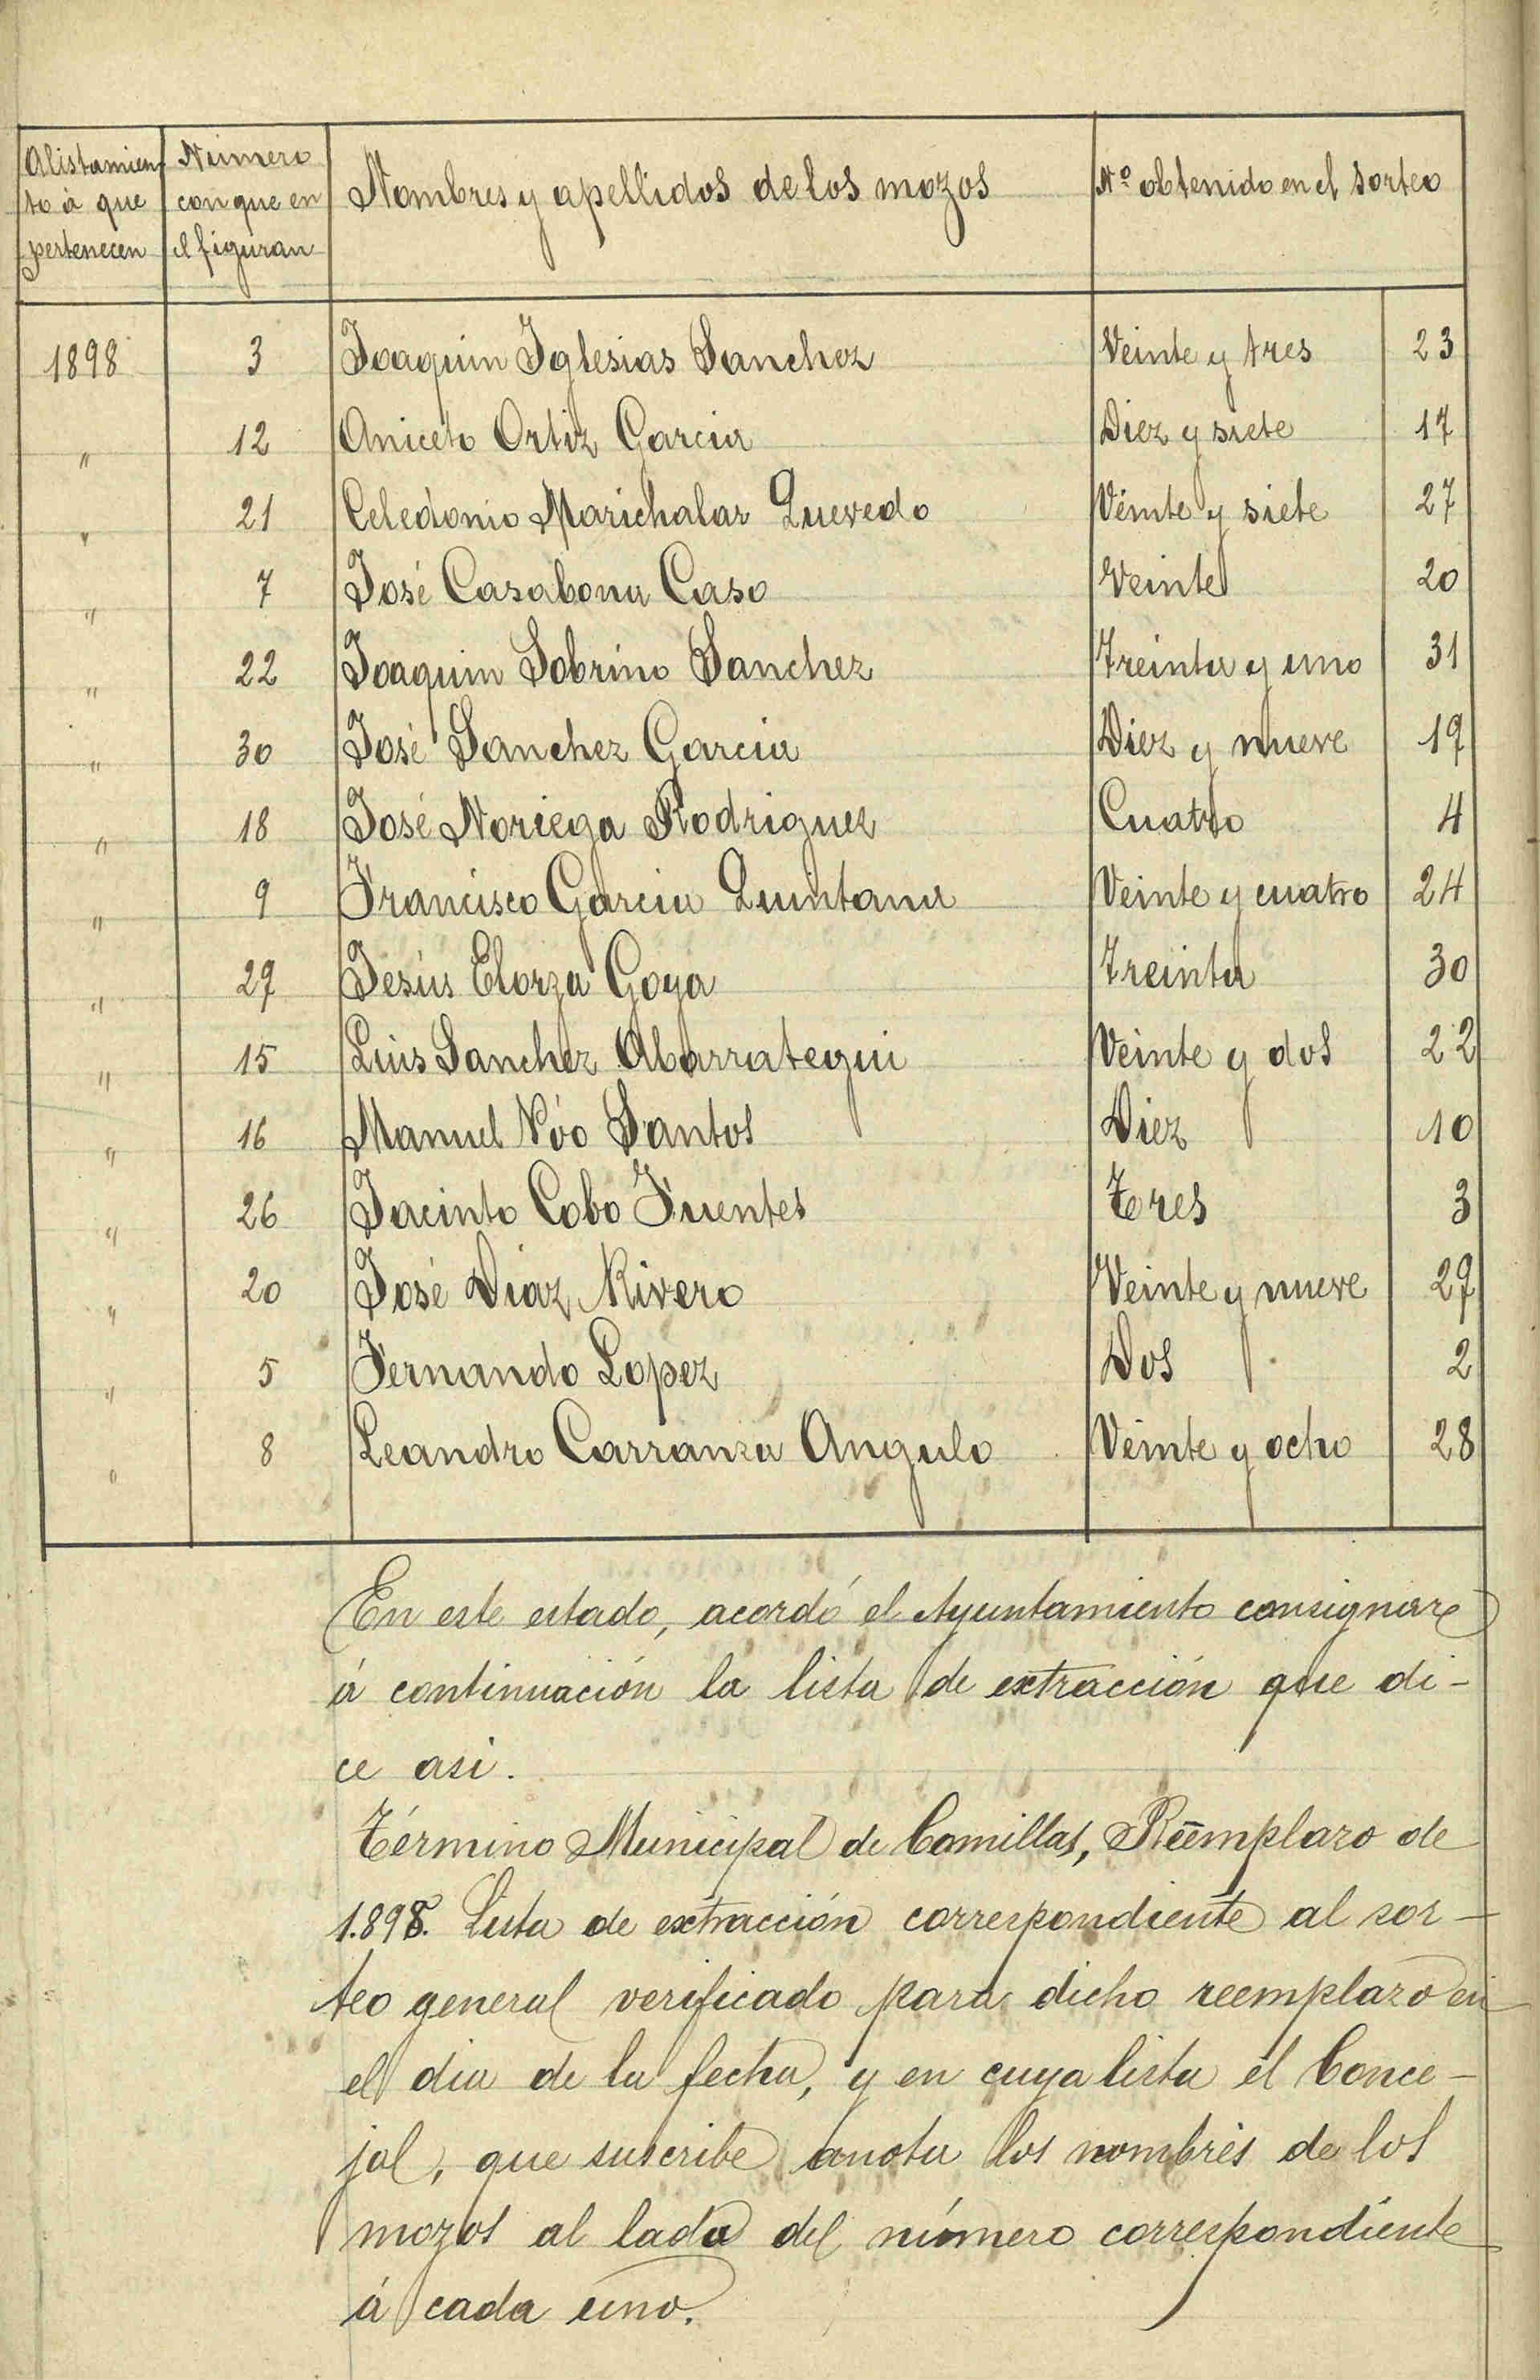 Alistamien
to á que
pertenecen
Número
con que en
el figuran
Nombres y apellidos de los mozos
Nº obtenido en el sorteo
1898 3 Joaquin Iglesias Sanchez Veinte y tres 23
" 12 Aniceto Ortiz Garcia Diez y siete 17
" 21 Celedonio Marichalar Quevedo Veinte y siete 27
" 7 José Casabona Caso Veinte 20
" 22 Joaquin Sobrino Sanchez Treinta y uno 31
" 30 José Sanchez Garcia Diez y nueve 19
" 18 José Noriega Rodriguez Cuatro 4
" 9 Francisco Garcia Quintana Veinte y cuatro 24
" 29 Jesús Elorza Goya Treinta 30
" 15 Luis Sanchez Abarrategui Veinte y dos 22
" 16 Manuel Póo Santos Diez 10
" 26 Jacinto Cobo Fuentes Tres 3
" 20 José Diaz Rivero Veinte y nueve 29
" 5 Fernando Lopez Dos 2
" 8 Leandro Carranza Angulo Veinte y ocho 28
En este estado, acordó el Ayuntamiento consignar
á continuación la lista de extracción que di-
ce asi.
Término Municipal de Comillas, Reemplazo de
1.898. Lista de extracción correspondiente al sor-
teo general verificado para dicho reemplazo en
el dia de la fecha, y en cuya lista el Conce-
jal, que suscribe anota los nombres de los
mozos al lado del número correspondiente
á cada uno.